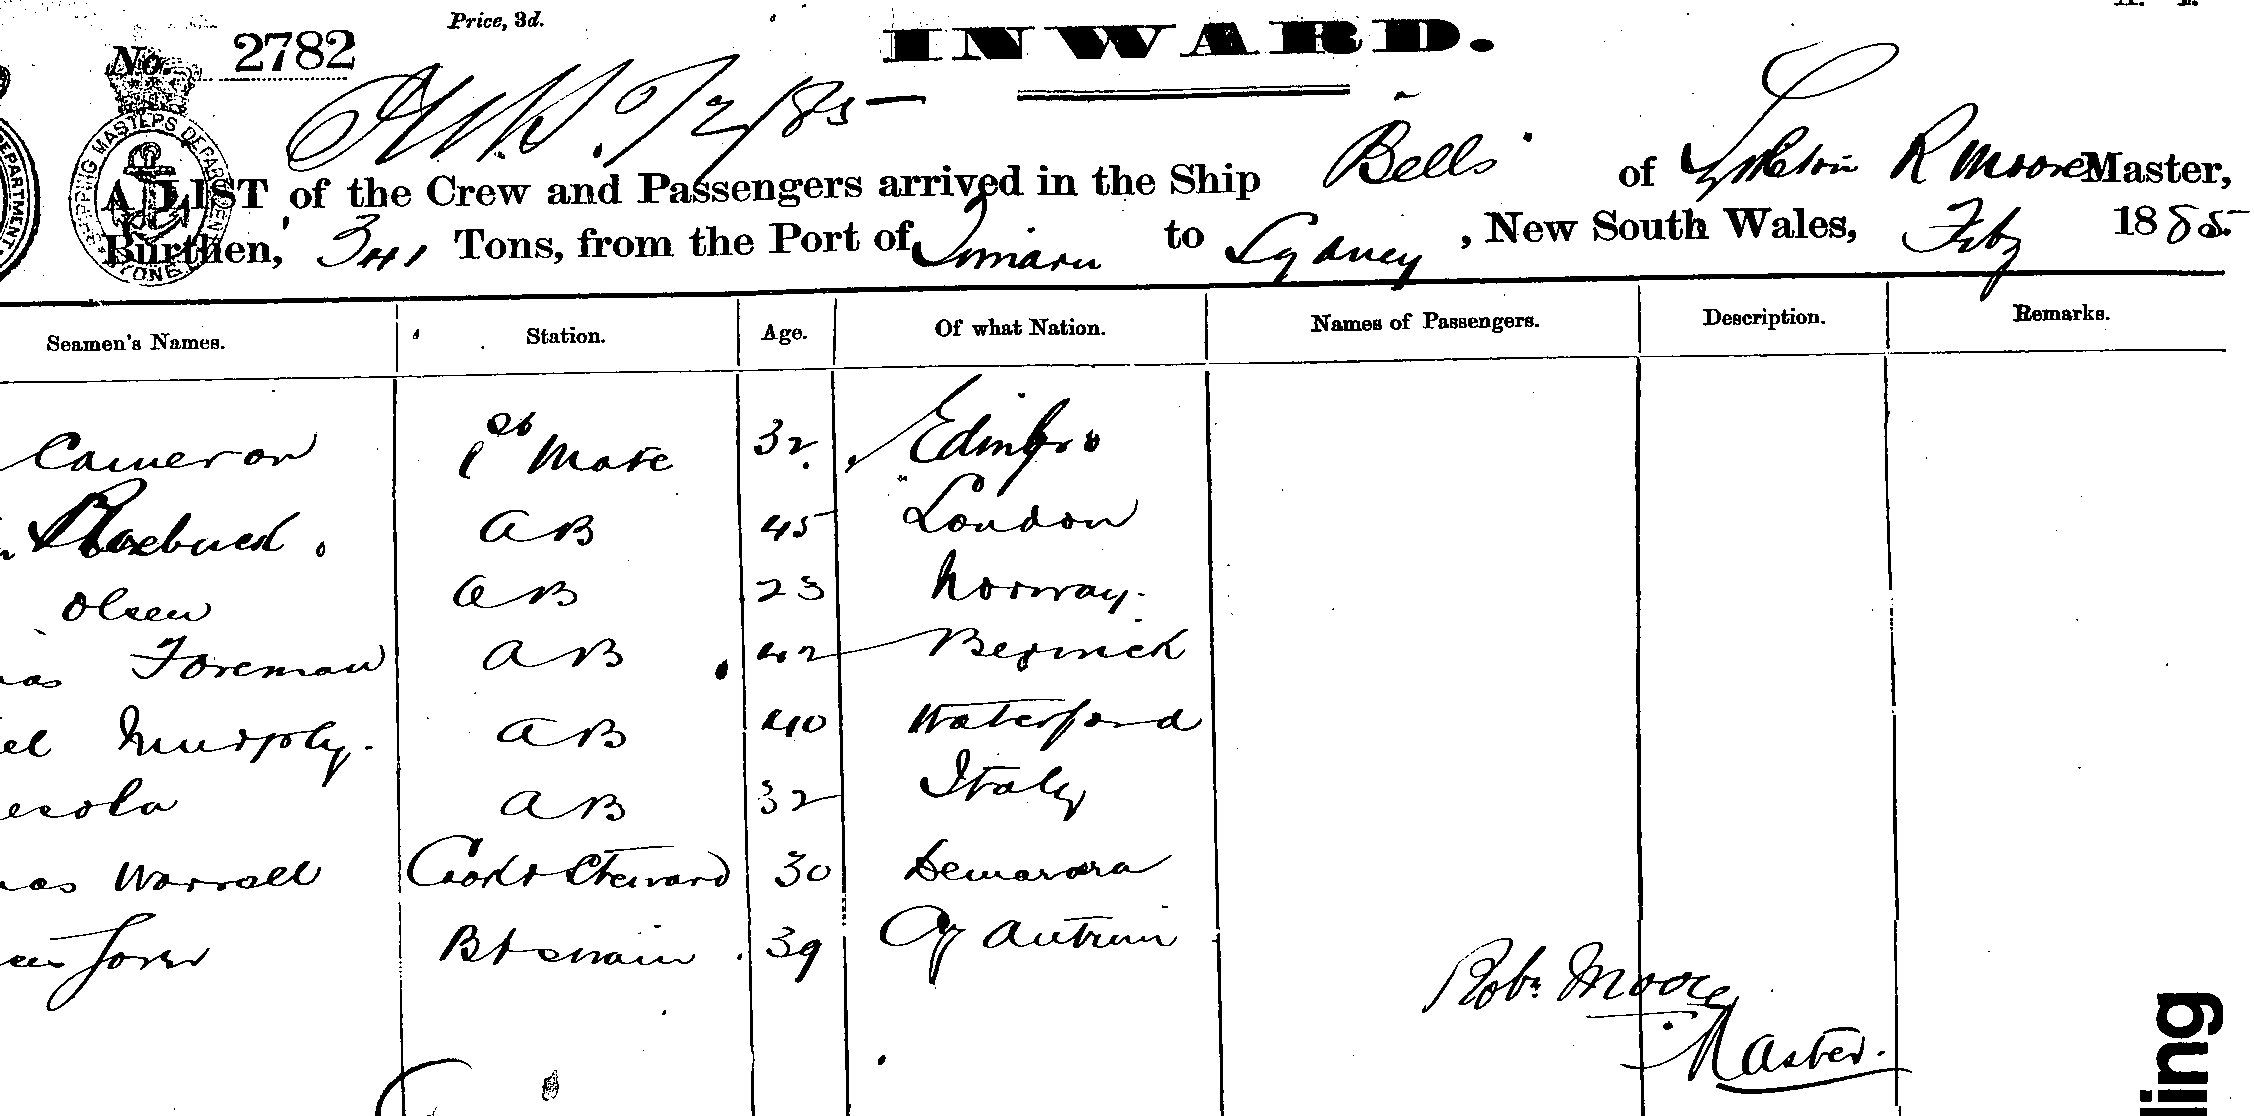 Price, 3d.
No. 2782
INWARD.
7/2/85
A LIST of the Crew and Passengers arrived in the Ship Bells of Lyttleton R Moore Master,
Burthen, 341 Tons, from the Port of Timaru to Sydney, New South Wales, Feby 1885
Seamen's Names. Station. Age. Of what Nation. Names of Passengers. Description. Remarks.
Cameron 1st Mate 32 Edinbro
AB 45 London
Olsen AB 23 Norway.
Foreman AB 42 Berwick
Murphy. AB 40 Waterford
AB 32 Italy
Worrall Cook & Steward 30 Demarara
Btswain 39 Cy Antrim
Robt Moore
Master.
SHIPPING MASTERS DEPARTMENT
SYDNEY
DEPARTMENT
ling